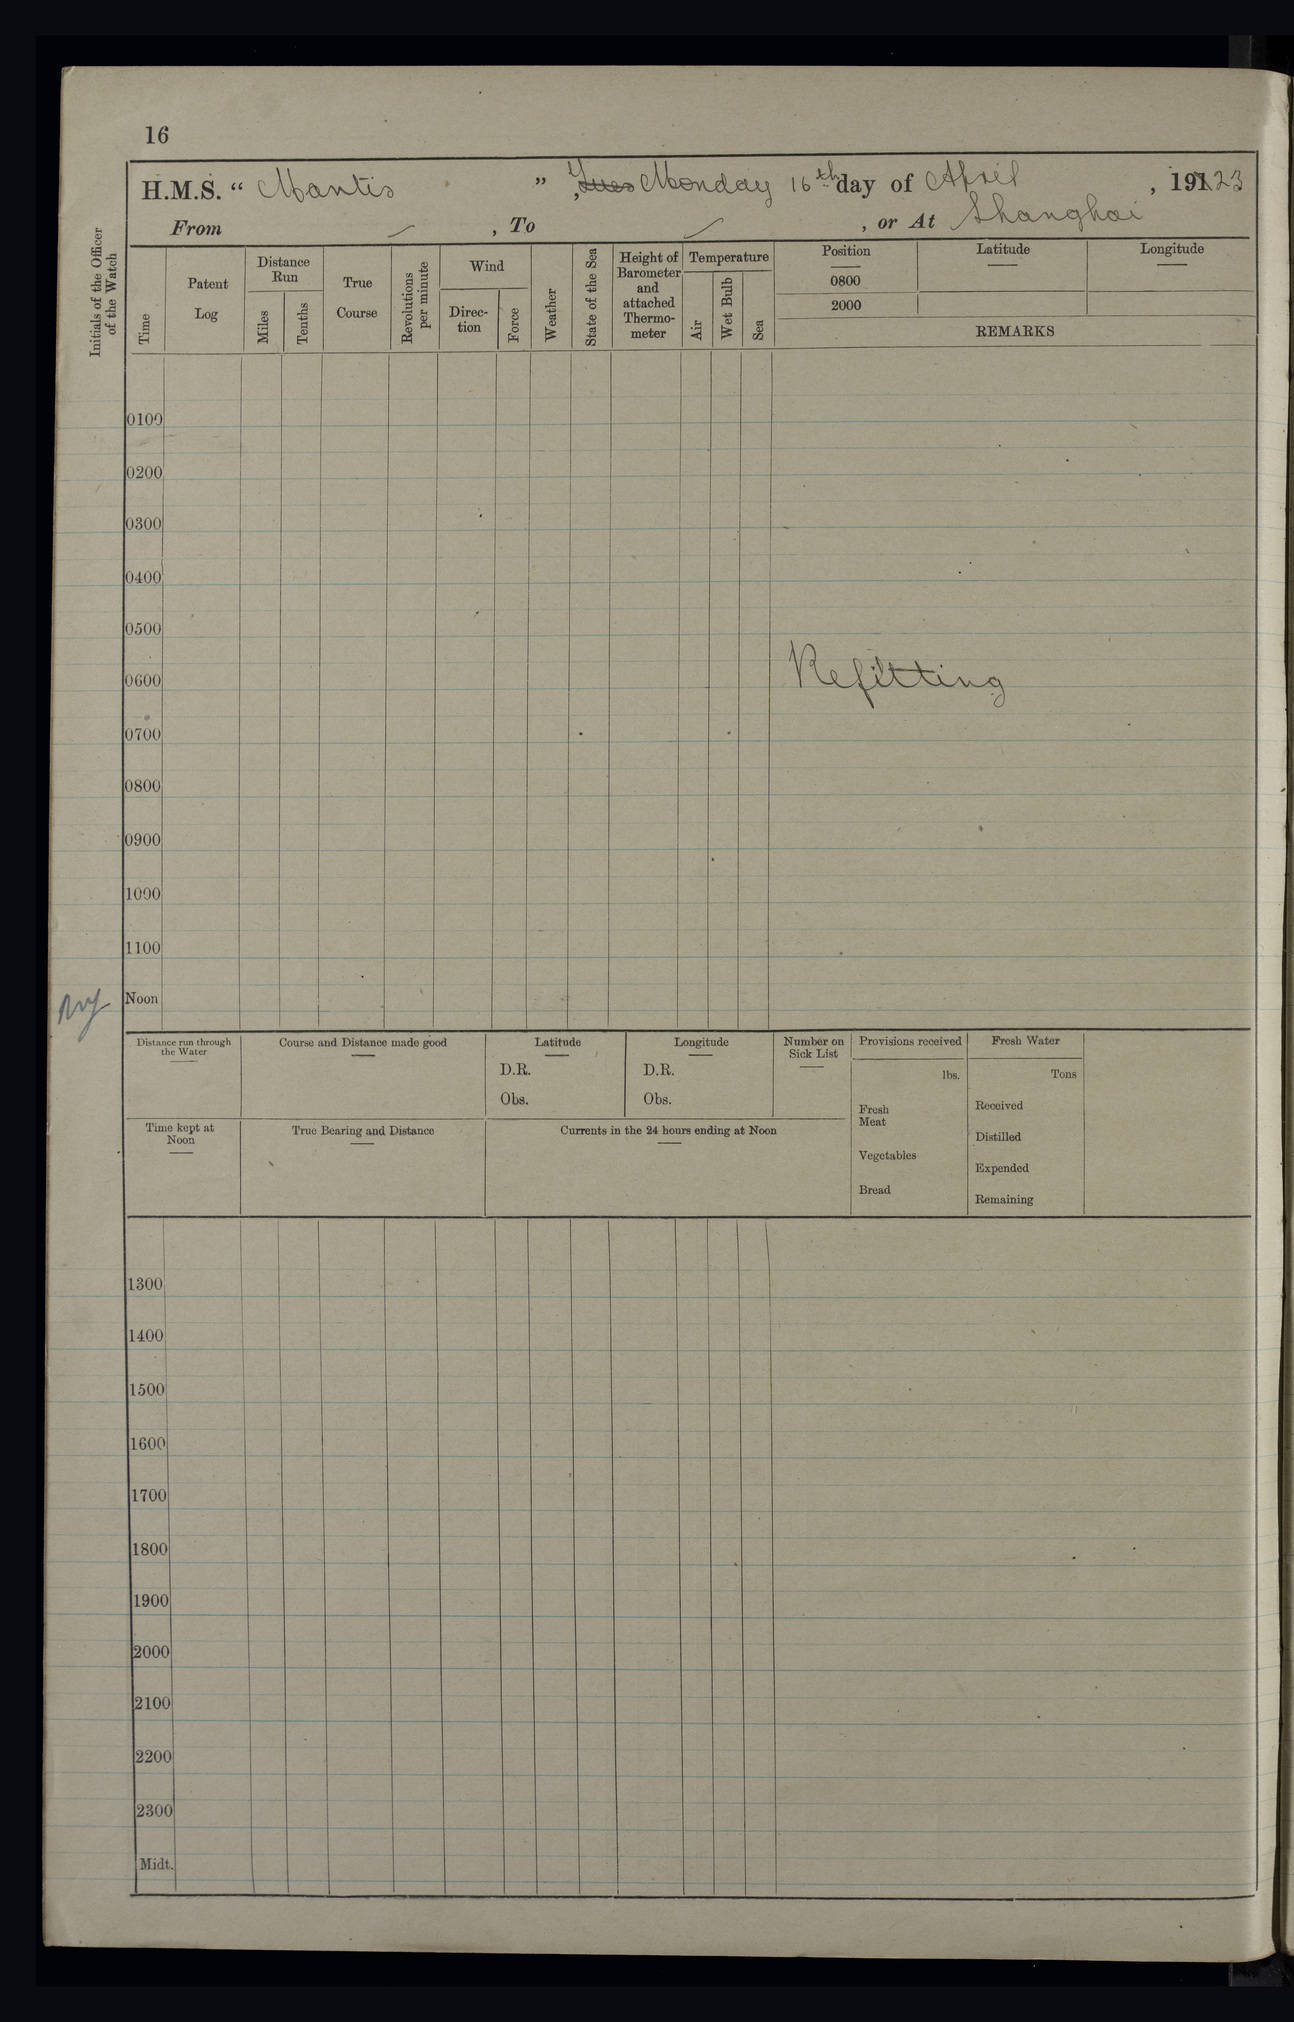 16
H.M.S. “ Mantis ” , Tues Monday 16th day of April , 19123
From , To , or At Shanghai
Initials of the Officer of the Watch
Time
Patent Log
Distance Run
Miles
Tenths
True Course
Revolutions per minute
Wind
Direc-tion
Force
Weather
State of the Sea
Height of Barometer and attached Thermo-meter
Temperature
Air
Wet Bulb
Sea
Position
Latitude
Longitude
0800
2000
REMARKS
0100
0200
0300
0400
0500
0600 Refitting
0700
0800
0900
1000
1100
Noon
Distance run through the Water
Course and Distance made good
Latitude
D.R.
Obs.
Longitude
D.R.
Obs.
Number on Sick List
Provisions received
lbs.
Fresh Meat
Vegetables
Bread
Fresh Water
Tons
Received
Distilled
Expended
Remaining
Time kept at Noon
True Bearing and Distance
Currents in the 24 hours ending at Noon
1300
1400
1500
1600
1700
1800
1900
2000
2100
2200
2300
Midt.